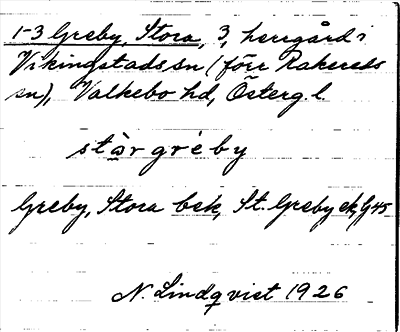 1-3 Greby, Stora, 3, herrgård i
Vikingstads sn (förr Rakereds
sn), Valkebo hd, Österg. l.
stòr gréby
Greby, Stora bek, St. Greby ek, G 45
N. Lindqvist 1926